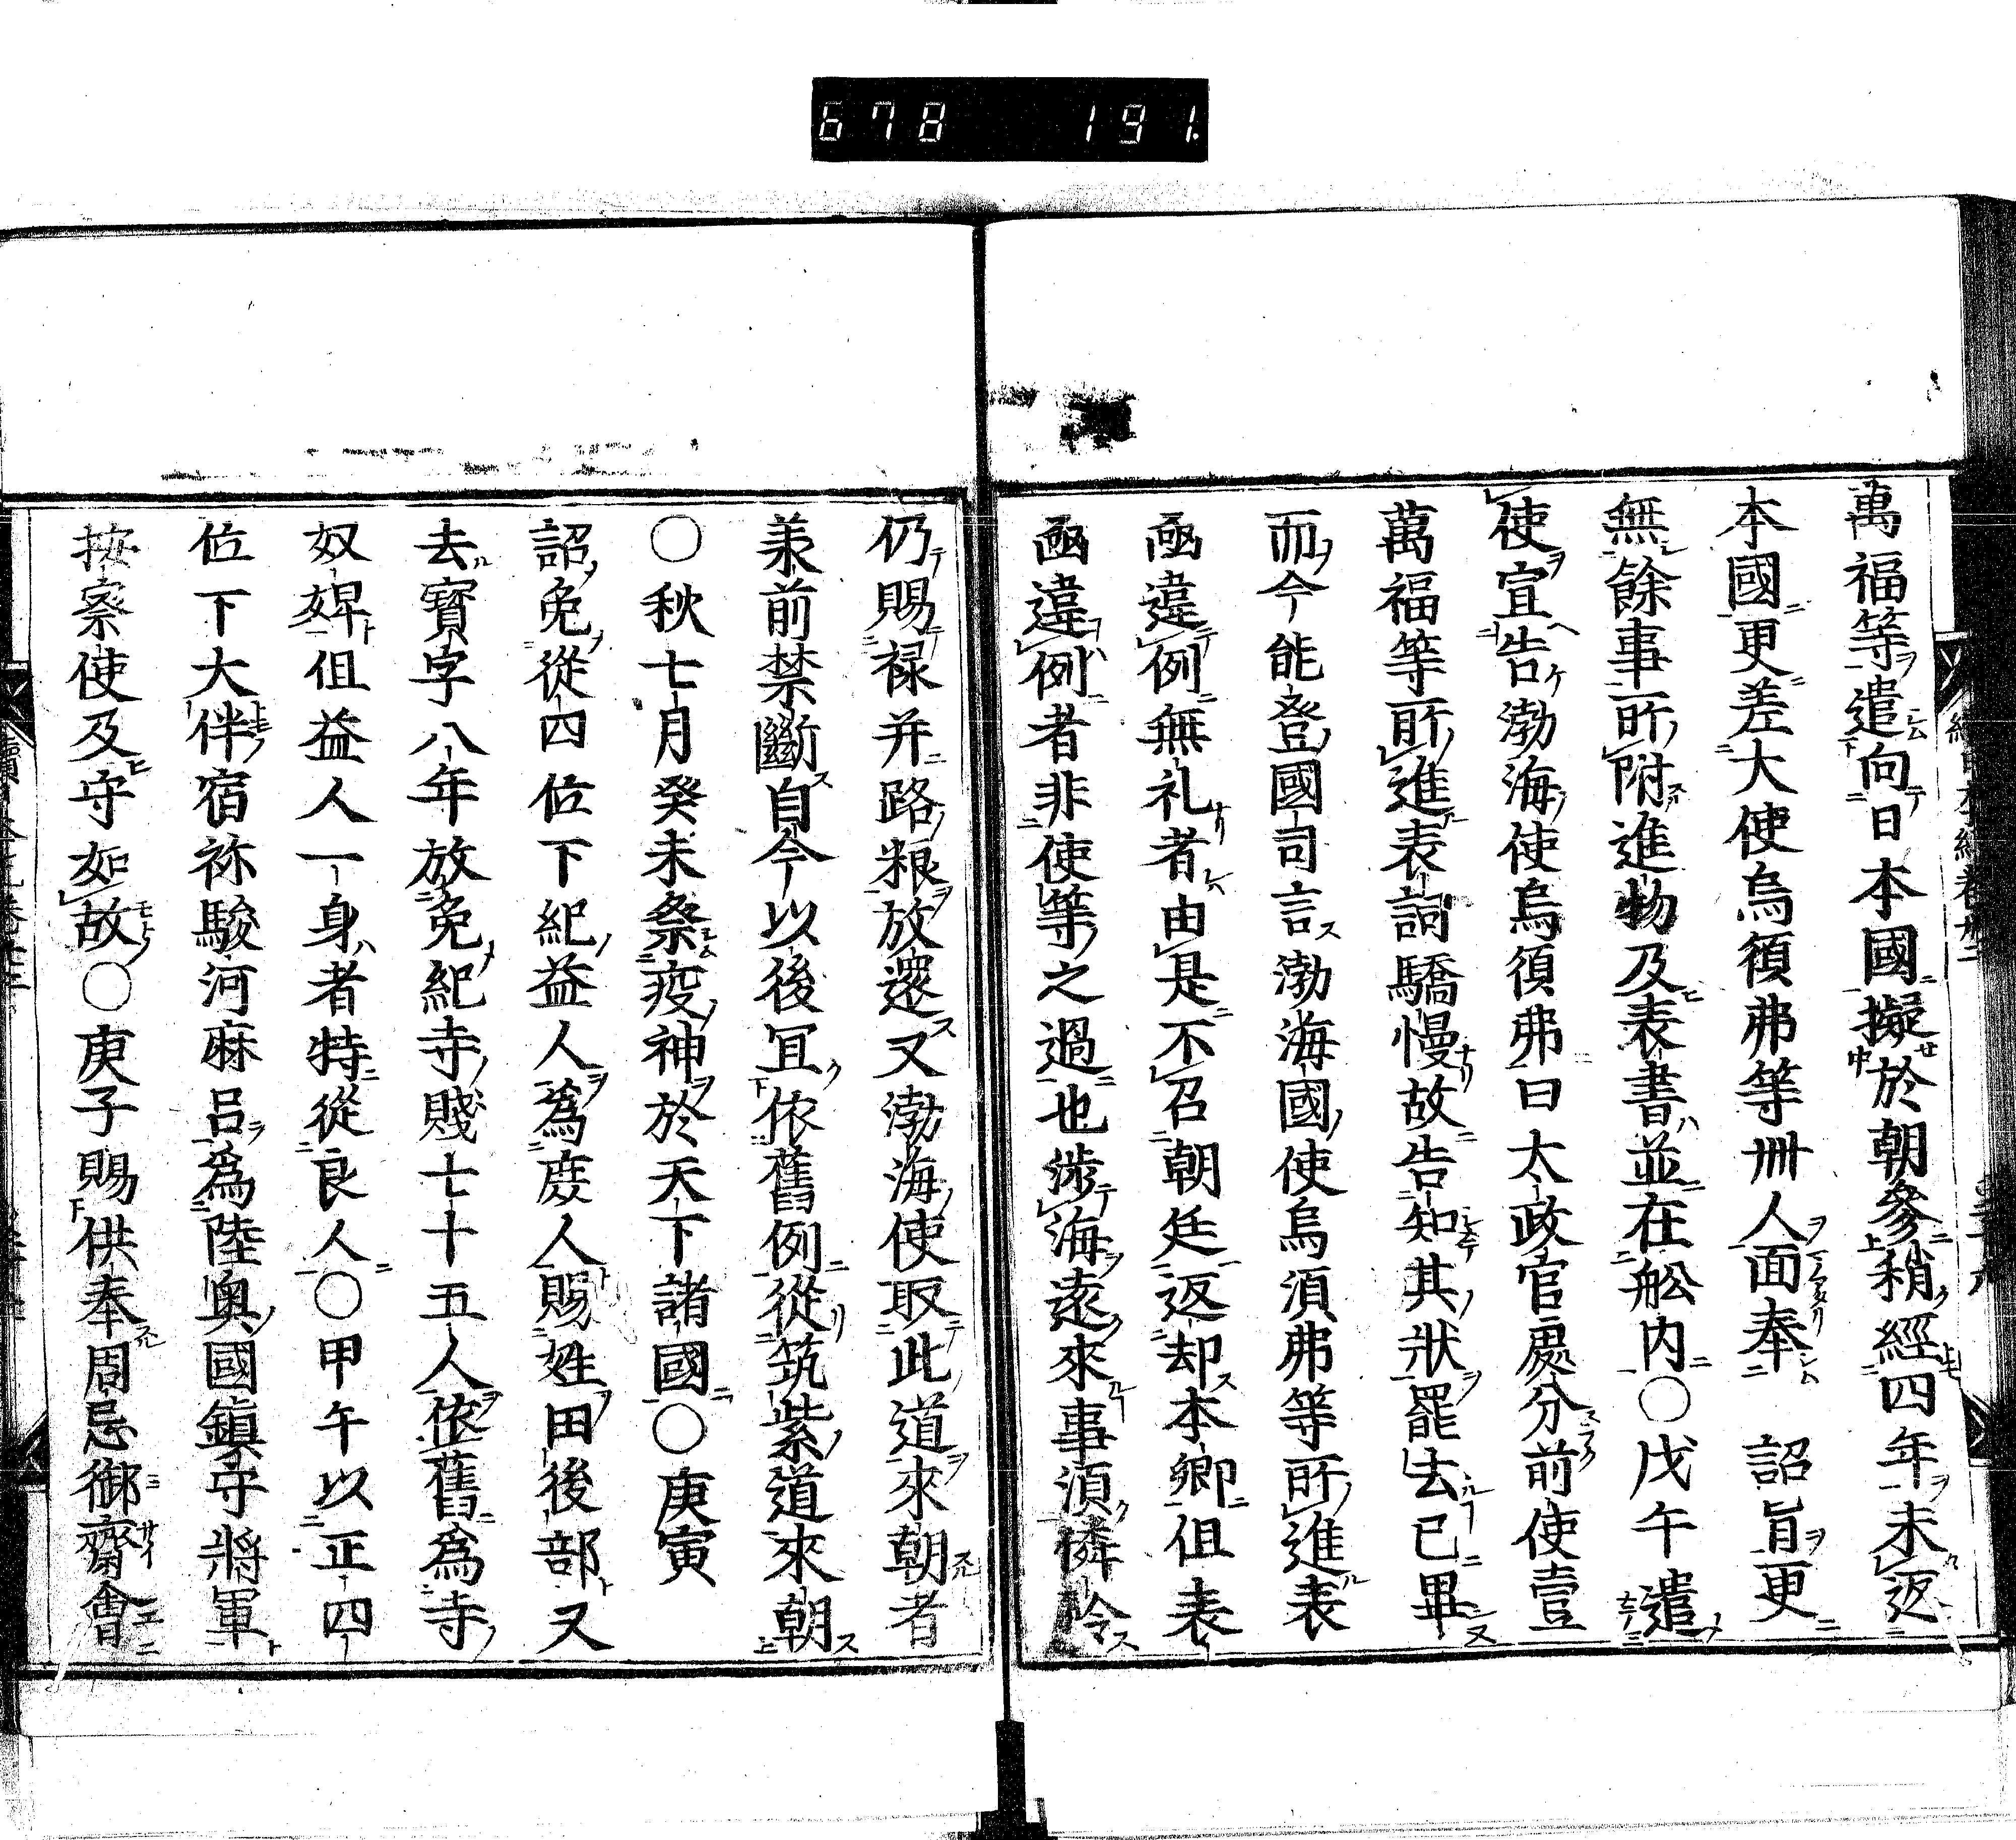 678 191.
萬福等遣向日本國擬於朝參稍經四年未返
本國更差大使烏須弗等卌人面奉 詔旨更
無餘事所附進物及表書並在舩内〇戊午遣
使宜告渤海使烏須弗曰太政官處分前使壹
萬福等所進表詞驕慢故告知其狀罷去已畢
而今能登國司言渤海國使烏須弗等所進表
凾違例無礼者由是不召朝廷返却本鄉但表
凾違例者非使等之過也涉海遠來事須憐矜
仍賜禄并路粮放還又渤海使取此道來朝者
羕前禁斷自今以後冝依舊例從筑紫道來朝
〇秋七月癸未祭疫神於天下諸國〇庚寅
詔免從四位下紀益人爲庻人賜姓田後部又
去寶字八年放免紀寺賤七十五人依舊爲寺
奴婢但益人一身者特從良人〇甲午以正四
位下大伴宿祢駿河麻呂爲陸奥國鎮守將軍
按察使及守如故〇庚子賜供奉周忌御齋會